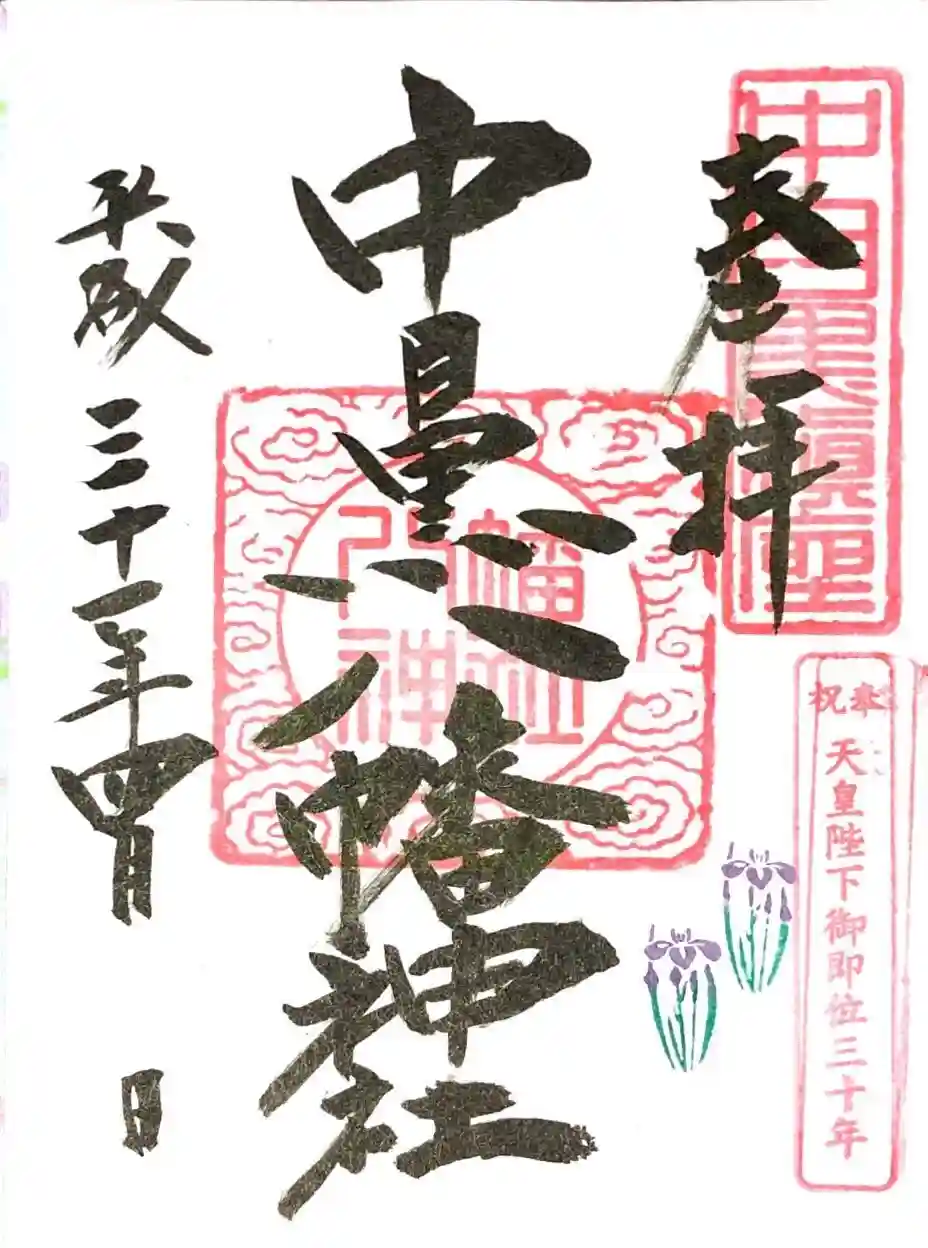 中目黒鎮座
奉拝
奉祝
天皇陛下御即位三十年
中目黒八幡神社
八幡
神社
平成三十一年四月 日